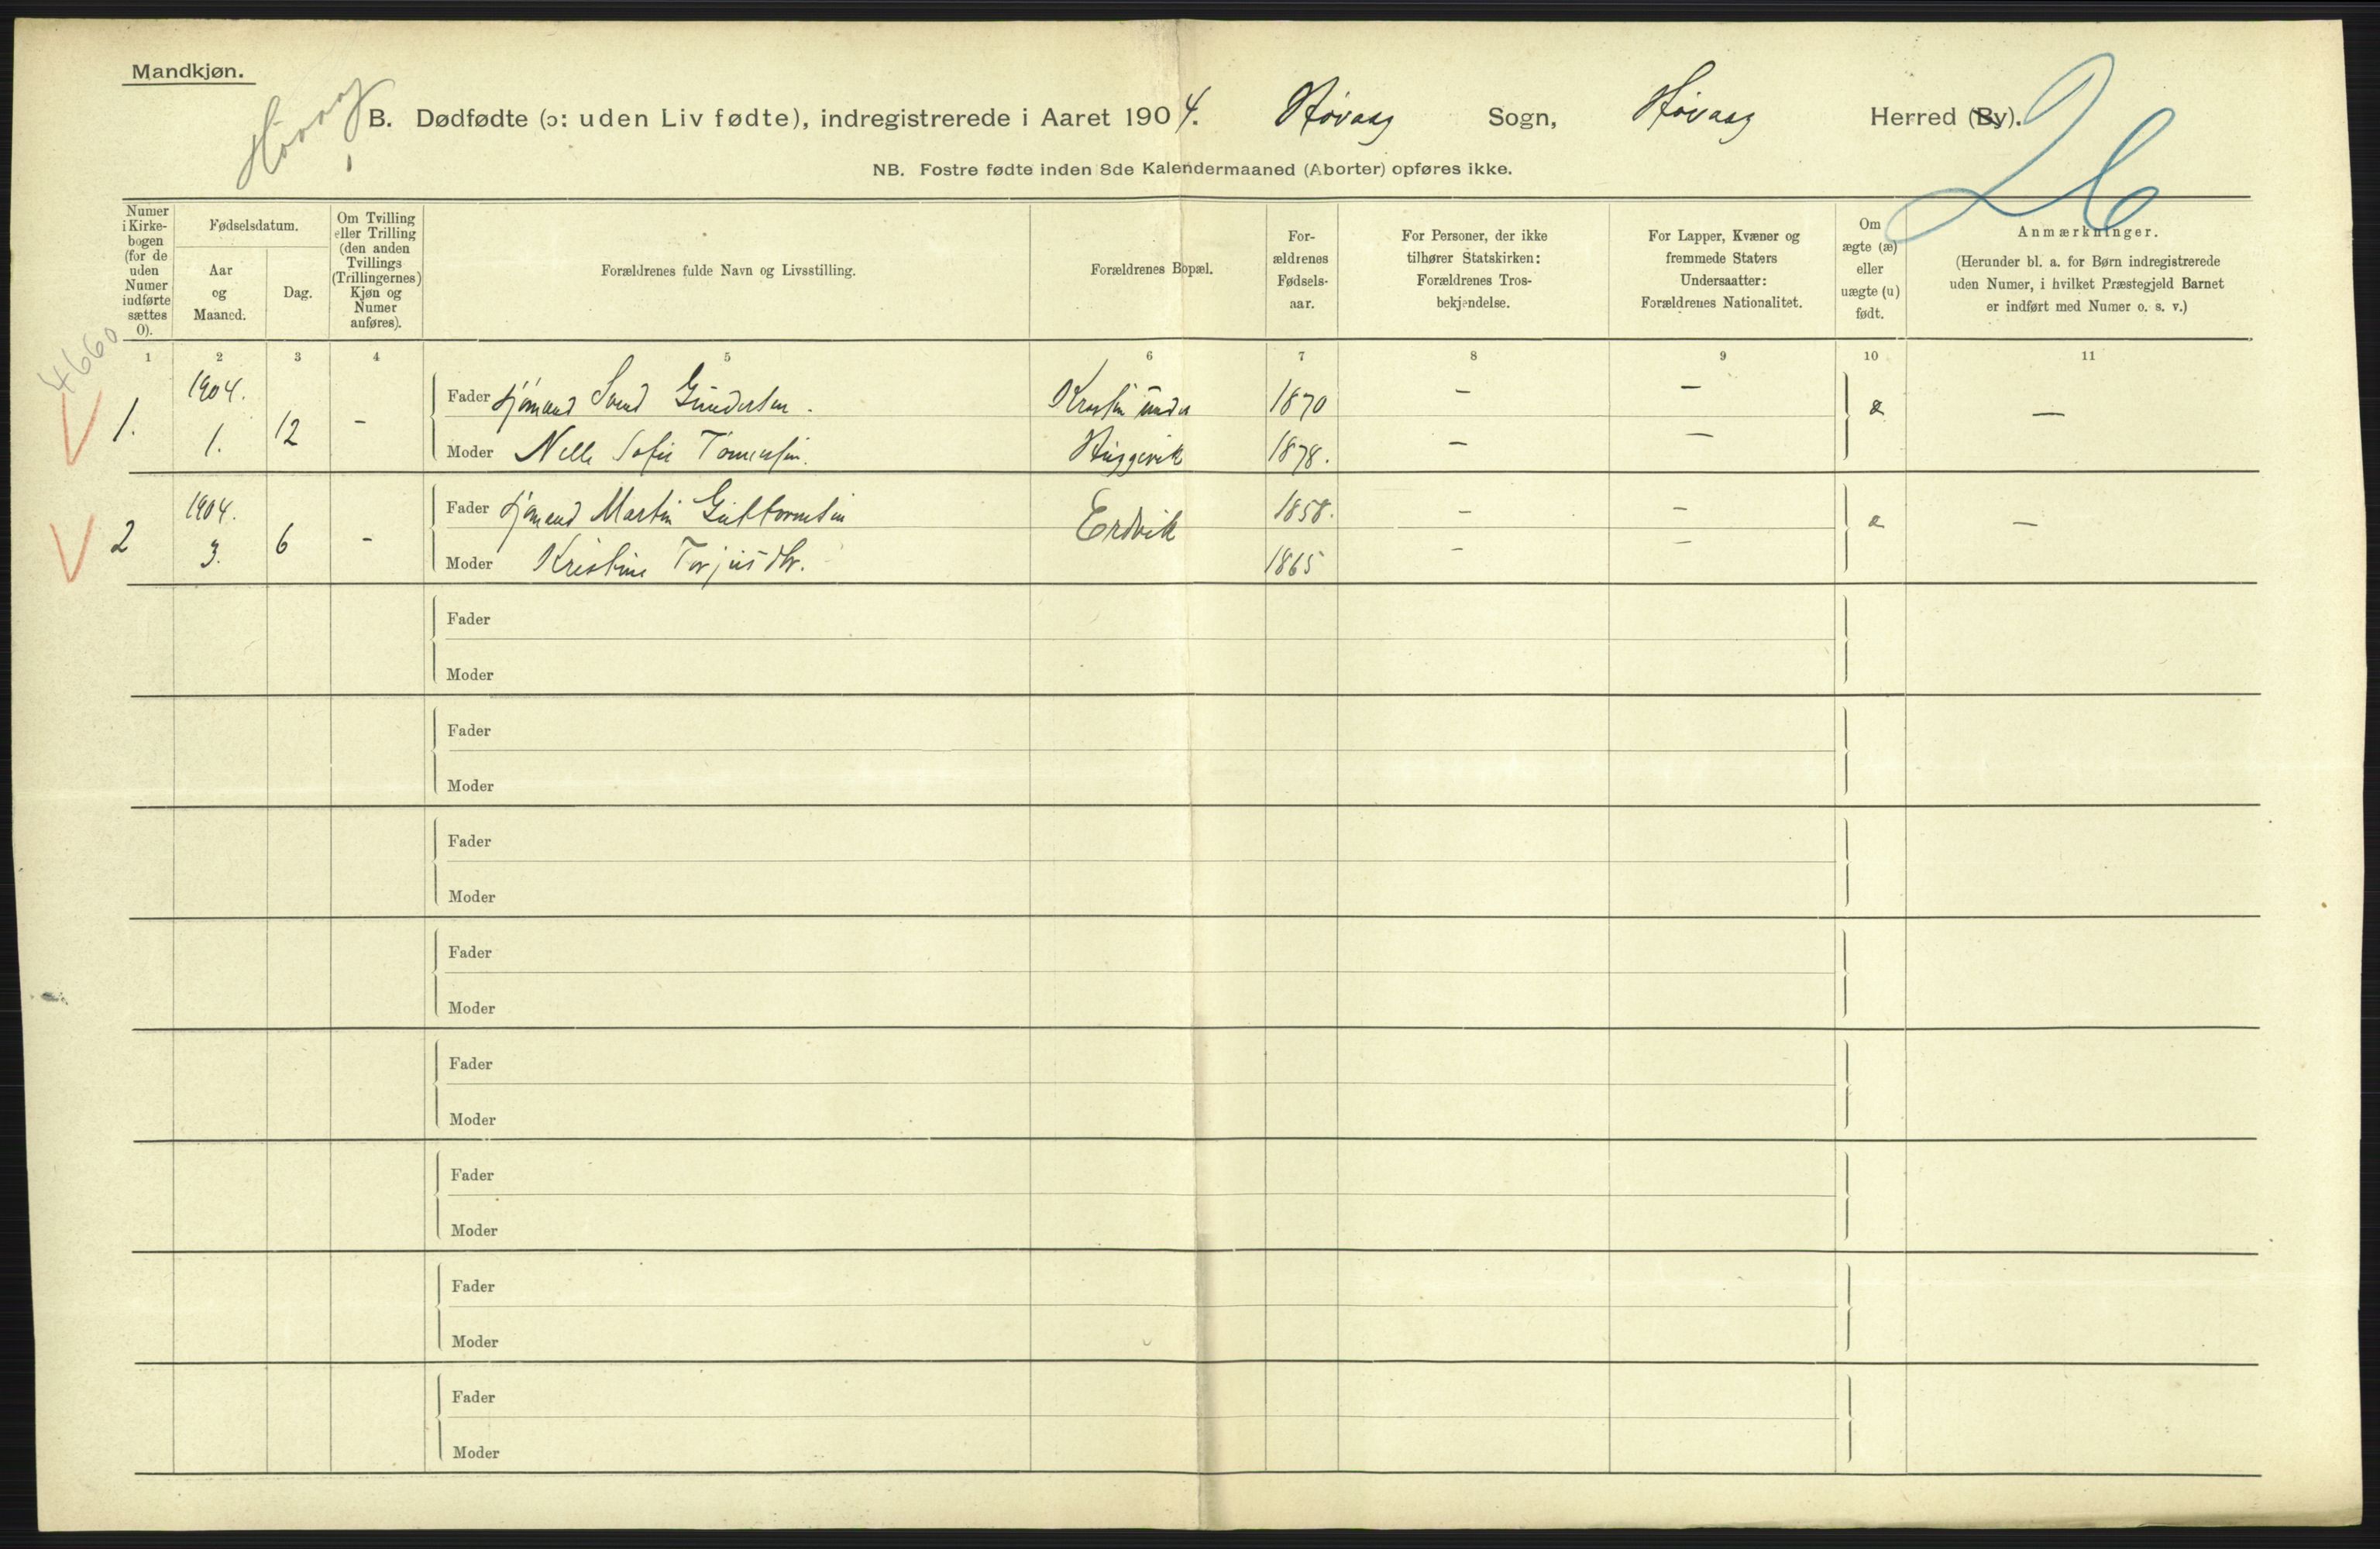 Mandkjøn.
Høvaag
B. Dødfødte (ɔ: uden Liv fødte), indregistrerede i Aaret 1904. Høvaag Sogn, Høvaag Herred (By).
26
NB. Fostre fødte inden 8de Kalendermaaned (Aborter) opføres ikke.
Numer i Kirke-bogen (for de uden Numer indførte sættes 0).
Fødselsdatum.
Aar og Maaned.
Dag.
Om Tvilling eller Trilling (den anden Tvillings (Trillingernes) Kjøn og Numer anføres).
Forældrenes fulde Navn og Livsstilling.
Forældrenes Bopæl.
For-ældrenes Fødsels-aar.
For Personer, der ikke tilhører Statskirken: Forældrenes Tros-bekjendelse.
For Lapper, Kvæner og fremmede Staters Undersaatter: Forældrenes Nationalitet.
Om ægte (æ) eller uægte (u) født.
Anmærkninger.
(Herunder bl. a. for Børn indregistrerede uden Numer, i hvilket Præstegjeld Barnet er indført med Numer o. s. v.)
4660
1 2 3 4 5 6 7 8 9 10 11
1. 1904. 1. 12 -
Fader Sjømand Svend Gundersen. 1870 - -
Moder Nelle Sofie Tønnesen. 1878. - -
under
æ —
2 1904. 3. 6 -
Fader Sjømand Martin Guttormsen Erdvik 1858. - -
Moder Kristine Torjusdtr. 1865 - -
æ —
Fader
Moder
Fader
Moder
Fader
Moder
Fader
Moder
Fader
Moder
Fader
Moder
Fader
Moder
Fader
Moder